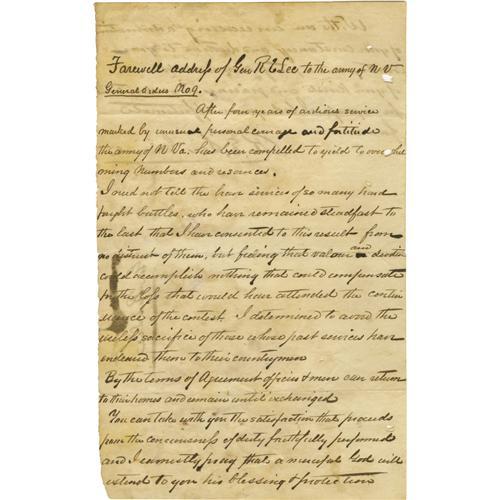 Farewell address of Gen R E Lee to the army of N V
General orders No 9.
After four years of ardious service
marked by unusual personal courage and fortitude
the army of N Va. has been compelled to yield to overwhel
ming numbers and resources.
I need not tell the brave survices of so many hard
fought battles, who have remained steadfast to
the last that I have consented to this result from
no distrust of them, but feeling that valour and devotion
could accomplish nothing that could compensate
for the loss that would have attended the contin
uance of the contest. I determined to avoid the
useless sacrifice of those whose past services have
endeared them to their countrymen
By the terms of Agreement officers & men can return
to their homes and remain until exchanged
You can take with you the satisfaction that proceeds
from the conciousness of duty faithfully performed
and I earnestly pray that a merciful God will
extend to you his blessing & protection